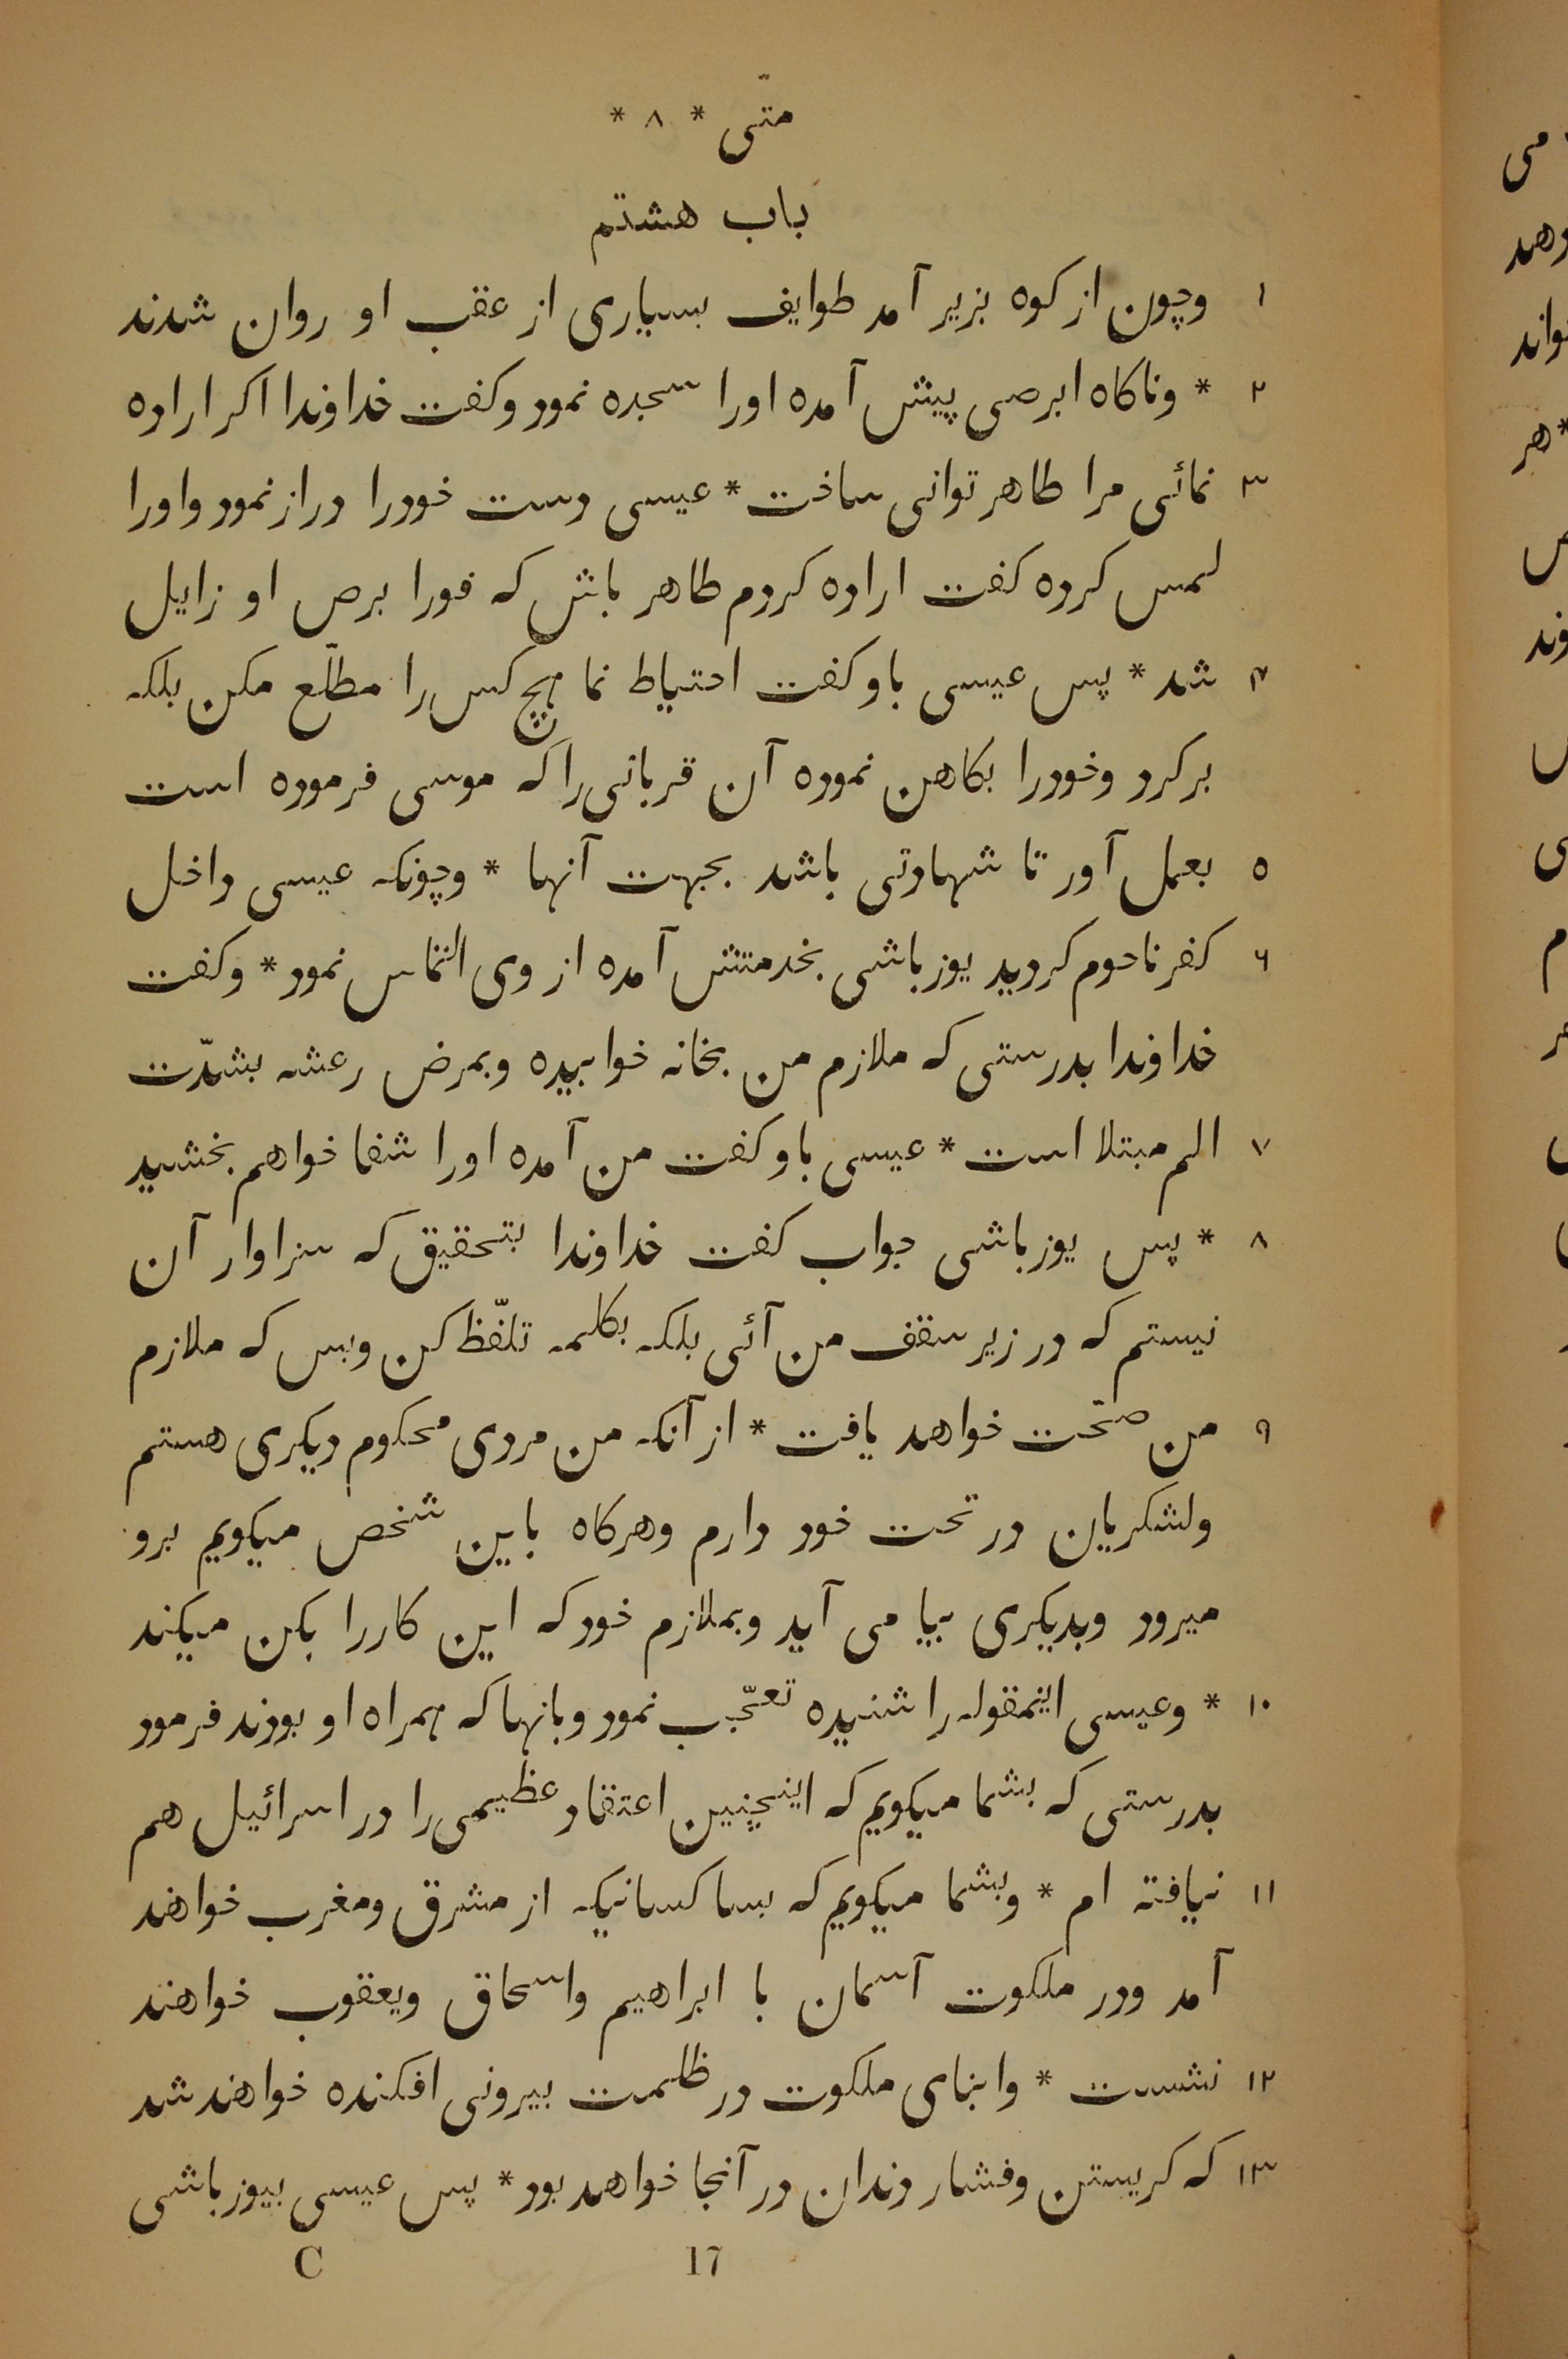 متّی * ۸ *
باب هشتم
۱ وچون از کوه بزیر آمد طوایف بسیاری از عقب او روان شدند
۲ * وناکاه ابرصی پیش آمده اورا سجده نمود وکفت خداوندا اکر اراده
۳ نمائی مرا طاهر توانی ساخت * عیسی دست خودرا دراز نمود واورا
لمس کرده کفت اراده کردم طاهر باش که فورا برص او زایل
۴ شد * پس عیسی باو کفت احتیاط نما هیچ کس را مطلّع مکن بلکه
برکرد وخودرا بکاهن نموده آن قربانی را که موسی فرموده است
۵ بعمل آور تا شهادتی باشد بجهت آنها * وچونکه عیسی داخل
۶ کفرناحوم کردید یوزباشی بخدمتش آمده از وی التماس نمود * وکفت
خداوندا بدرستی که ملازم من بخانه خوابیده وبمرض رعشه بشدّت
۷ الم مبتلا است * عیسی باو کفت من آمده اورا شفا خواهم بخشید
۸ * پس یوزباشی جواب کفت خداوندا بتحقیق که سزاوار آن
نیستم که در زیر سقف من آئی بلکه بکلمه تلفّظ کن وبس که ملازم
۹ من صحّت خواهد یافت * از آنکه من مردی محکوم دیکری هستم
ولشکریان در تحت خود دارم وهرکاه باین شخص میکویم برو
میرود وبدیکری بیا می آید وبملازم خود که این کاررا بکن میکند
۱۰ * وعیسی اینمقوله را شنیده تعجّب نمود وبانها که همراه او بودند فرمود
بدرستی که بشما میکویم که اینچنین اعتقاد عظیمی را در اسرائیل هم
۱۱ نیافته ام * وبشما میکویم که بسا کسانیکه از مشرق ومغرب خواهند
آمد ودر ملکوت آسمان با ابراهیم واسحاق ویعقوب خواهند
۱۲ نشست * وابنای ملکوت در ظلمت بیرونی افکنده خواهند شد
۱۳ که کریستن وفشار دندان در آنجا خواهد بود * پس عیسی بیوزباشی
17 C